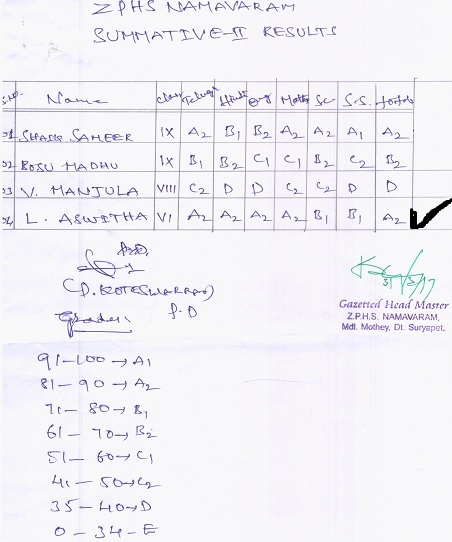 Z.P.H.S NAMAVARAM
SUMMATIVE-II RESULTS
Name Class Telugu Hindi Eng Maths Sc S.S. Total
01 SHAIK SAMEER IX A2 B1 B2 A2 A2 A1 A2
02 BOSU MADHU IX B1 B2 C1 C1 B2 C2 B2
03 V. MANJULA VIII C2 D D C2 C2 D D
04 L. ASWITHA VI A2 A2 A2 A2 B1 B1 A2
(P. KOTESWARRAO)
P.D
Grades:
Gazetted Head Master
Z.P.H.S. NAMAVARAM,
Mdl. Mothey, Dt. Suryapet.
91-100→A1
81-90→A2
71-80→B1
61-70→B2
51-60→C1
41-50→C2
35-40→D
0-34-E